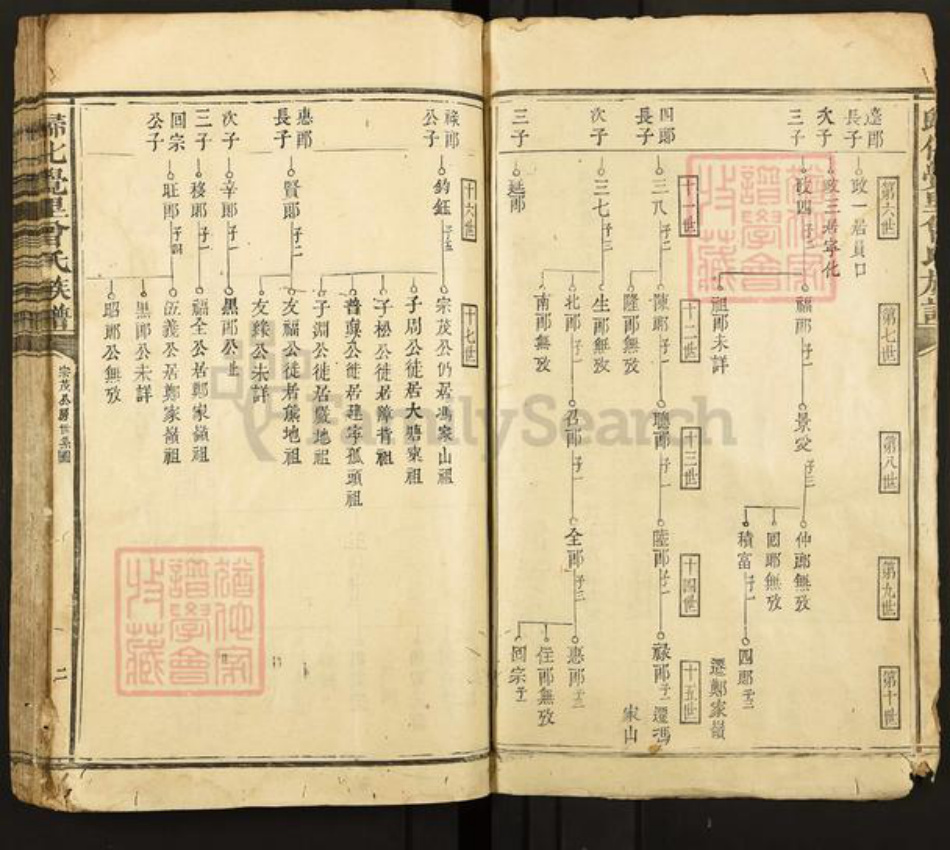 第六世
第七世
第八世
第九世
第十世
遼郎
長子
政一居員口
次子
政三居寧化
三子
政四 子二
福郎 子一
景爻 子三
仲郎無攷
囬郎無攷
積富 子一
四郎 子三
遷鄭家嶺
祖郎未詳
十一世
十二世
十三世
十四世
十五世
四郎
長子
三八 子二
陳郎 子一
聰郎 子一
陸郎 子一
祿郎 子一 遷馮
家山
隆郎無攷
次子
三七 子三
生郎無攷
北郎 子一
召郎 子一
全郎 子三
惠郎 子三
住郎無攷
囬宗 子一
南郎無攷
三子
延郎
十六世
十七世
祿郎
公子
鈞鈺 子五
宗茂公仍居馮家山祖
子周公徒居大塘窠祖
子松公徒居障背祖
普奠公徙居建寧孤頭祖
子淵公徒居嚴地祖
惠郎
長子
賢郎 子二
友福公徒居熊地祖
友錂公未詳
次子
辛郎 子一
黑郎公止
三子
移郎 子一
福全公居鄭家嶺祖
囬宗
公子
旺郎 子三
伍義公居鄭家嶺祖
黑郎公未詳
昭郎公無攷
歸化覺里曾氏族譜
宗茂公歷世系圖
二
FamilySearch
譜學會
收藏